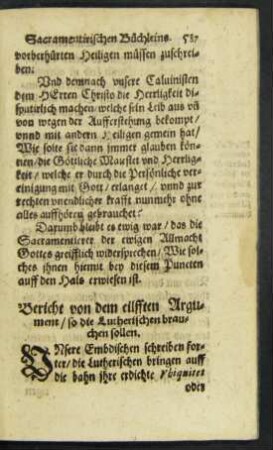 Sacramentirischen Büchleins. 587
vorberhürten Heiligen müssen zuschrei-
ben.
Vnd demnach vnsere Caluinisten
dem HErren Christo die Herrligkeit di-
sputirlich machen/ welche sein Leib aus vñ
von wegen der Aufferstehung bekompt/
vnnd mit andern Heiligen gemein hat/
Wie solte sie dann jmmer glauben kön-
nen/ die Göttliche Maiestet vnd Herrlig-
keit/ welche er durch die Persönliche ver-
einigung mit Gott/ erlanget/ vnnd zur
rechten vnendlicher krafft nunmehr ohne
alles auffhören gebrauchet?
Darumb bleibt es ewig war/ das die
Sacramentierer der ewigen Allmacht
Gottes greifflich widersprechen/ Wie sol-
ches jhnen hiemit bey diesem Puncten
auff den Hals erwiesen ist.
Bericht von dem eilfften Argu-
ment/ so die Lutherischen brau-
chen sollen.
VNsere Embdischen schreiben for-
ter/ die Lutherischen bringen auff
die bahn jhre erdichte Vbiquitet
oder